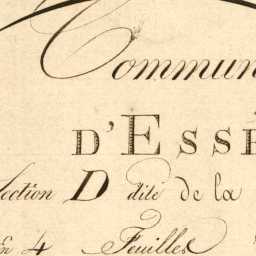 Commun
D'ESSÉ
Section D dite de la
En 4 Feuilles